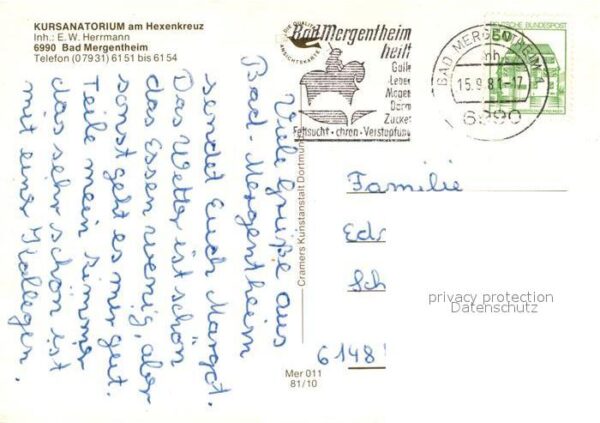 KURSANATORIUM am Hexenkreuz
Inh.: E. W. Herrmann
6990 Bad Mergentheim
Telefon (07931) 6151 bis 6154
Viele Grüße aus
Bad-Mergentheim
sendet Euch Margot.
Das Wetter ist schön
das Essen wenig, aber
sonst geht es mir gut.
Teile mein Zimmer
das sehr schön ist
mit einer Kollegen.
Cramers Kunstanstalt Dortmund
DIE QUALITÄTS
ANSICHTSKARTE
Bad Mergentheim
heilt
Galle
Leber
Magen
Darm
Zucker
Fettsucht - chron. Verstopfung
BAD MERGENTHEIM 1
mh
15.9.81-17
6990
DEUTSCHE BUNDESPOST
50
Familie
Ed
Sch
6148
privacy protection
Datenschutz
Mer 011
81/10